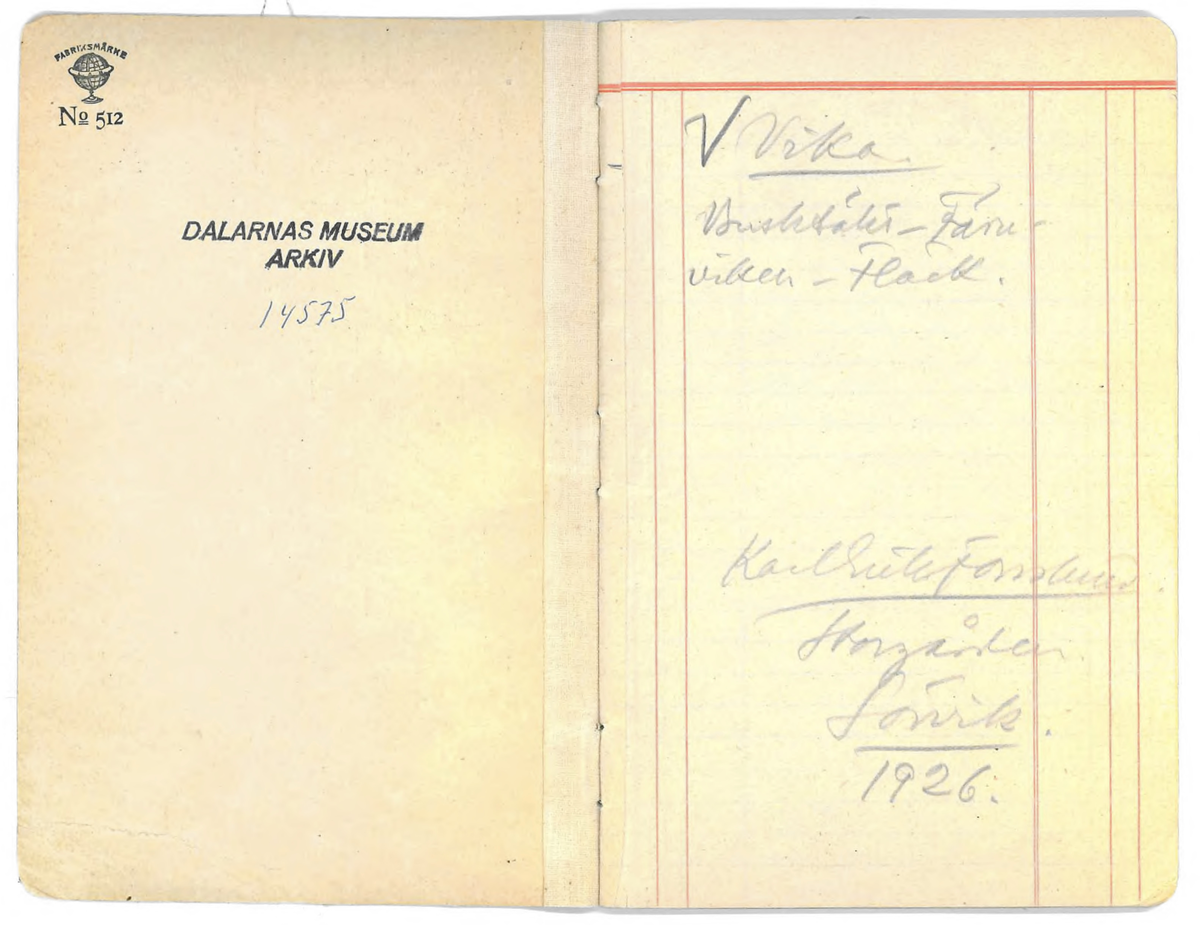 FABRIKSMÄRKE
Nº 512
DALARNAS MUSEUM
ARKIV
14575
V Vika.
Busktäkt – Färn-
viken – Flack.
Karl Erik Forsslund.
Storgården.
Sörvik.
1926.